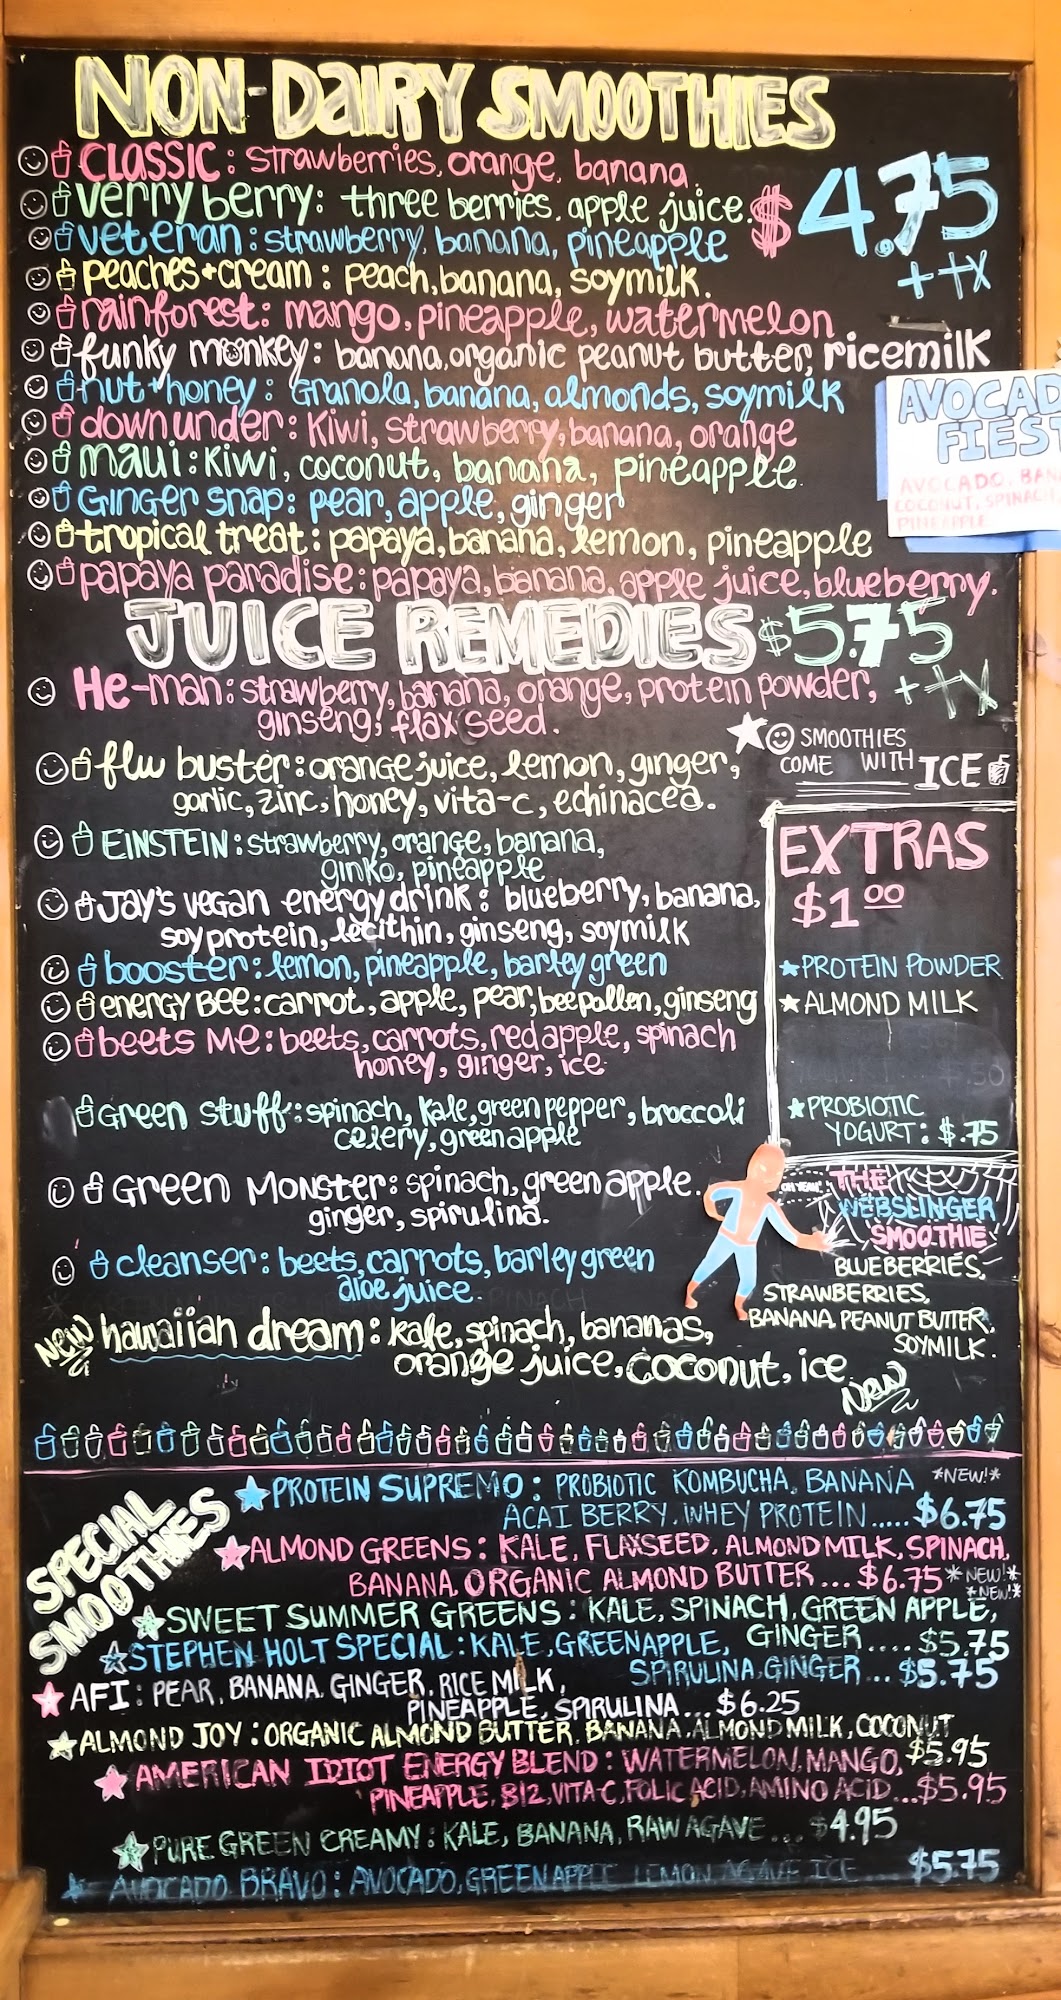 NON-DAIRY SMOOTHIES
CLASSIC: strawberries, orange, banana.
$4.75
verry berry: three berries, apple juice.
veteran: strawberry, banana, pineapple
+ tx
peaches+cream: peach, banana, soymilk.
rainforest: mango, pineapple, watermelon
funky monkey: banana, organic peanut butter, ricemilk
nut+honey: Granola, banana, almonds, soymilk
down under: kiwi, strawberry, banana, orange
maui: kiwi, coconut, banana, pineapple.
GINGER snap: pear, apple, ginger
tropical treat: papaya, banana, lemon, pineapple
papaya paradise: papaya, banana, apple juice, blueberry.
AVOCAD
FIEST
AVOCADO, BAN
COCONUT, SPINAC
PINEAPPLE
JUICE REMEDIES $5.75
+ tx
He-man: strawberry, banana, orange, protein powder,
ginseng, flax seed.
SMOOTHIES
COME WITH ICE
flu buster: orange juice, lemon, ginger,
garlic, zinc, honey, vita-c, echinacea.
EINSTEIN: strawberry, orange, banana,
ginko, pineapple
Jay's vegan energy drink: blueberry, banana,
soy protein, lecithin, ginseng, soymilk
booster: lemon, pineapple, barley green
energy Bee: carrot, apple, pear, bee pollen, ginseng
beets Me: beets, carrots, red apple, spinach
honey, ginger, ice
Green stuff: spinach, kale, green pepper, broccoli
celery, green apple
Green Monster: spinach, green apple.
ginger, spirulina.
cleanser: beets, carrots, barley green
aloe juice.
NEW hawaiian dream: kale, spinach, bananas,
orange juice, coconut, ice
NEW
EXTRAS
$1.00
PROTEIN POWDER
ALMOND MILK
PROBIOTIC
YOGURT: $.75
OH YEAH!
THE
WEBSLINGER
SMOOTHIE
BLUEBERRIES,
STRAWBERRIES,
BANANA, PEANUT BUTTER,
SOYMILK.
SPECIAL
SMOOTHIES
PROTEIN SUPREMO: PROBIOTIC KOMBUCHA, BANANA *NEW!*
ACAI BERRY, WHEY PROTEIN ..... $6.75
ALMOND GREENS: KALE, FLAXSEED, ALMOND MILK, SPINACH,
BANANA, ORGANIC ALMOND BUTTER ... $6.75 *NEW!*
*NEW!*
SWEET SUMMER GREENS: KALE, SPINACH, GREEN APPLE,
GINGER .... $5.75
STEPHEN HOLT SPECIAL: KALE, GREEN APPLE,
SPIRULINA, GINGER ... $5.75
AFI: PEAR, BANANA, GINGER, RICE MILK,
PINEAPPLE, SPIRULINA ... $6.25
ALMOND JOY: ORGANIC ALMOND BUTTER, BANANA, ALMOND MILK, COCONUT
$5.95
AMERICAN IDIOT ENERGY BLEND: WATERMELON, MANGO,
PINEAPPLE, B12, VITA-C, FOLIC ACID, AMINO ACID...$5.95
PURE GREEN CREAMY: KALE, BANANA, RAW AGAVE ... $4.95
AVOCADO BRAVO: AVOCADO, GREEN APPLE LEMON AGAVE ICE ... $5.75